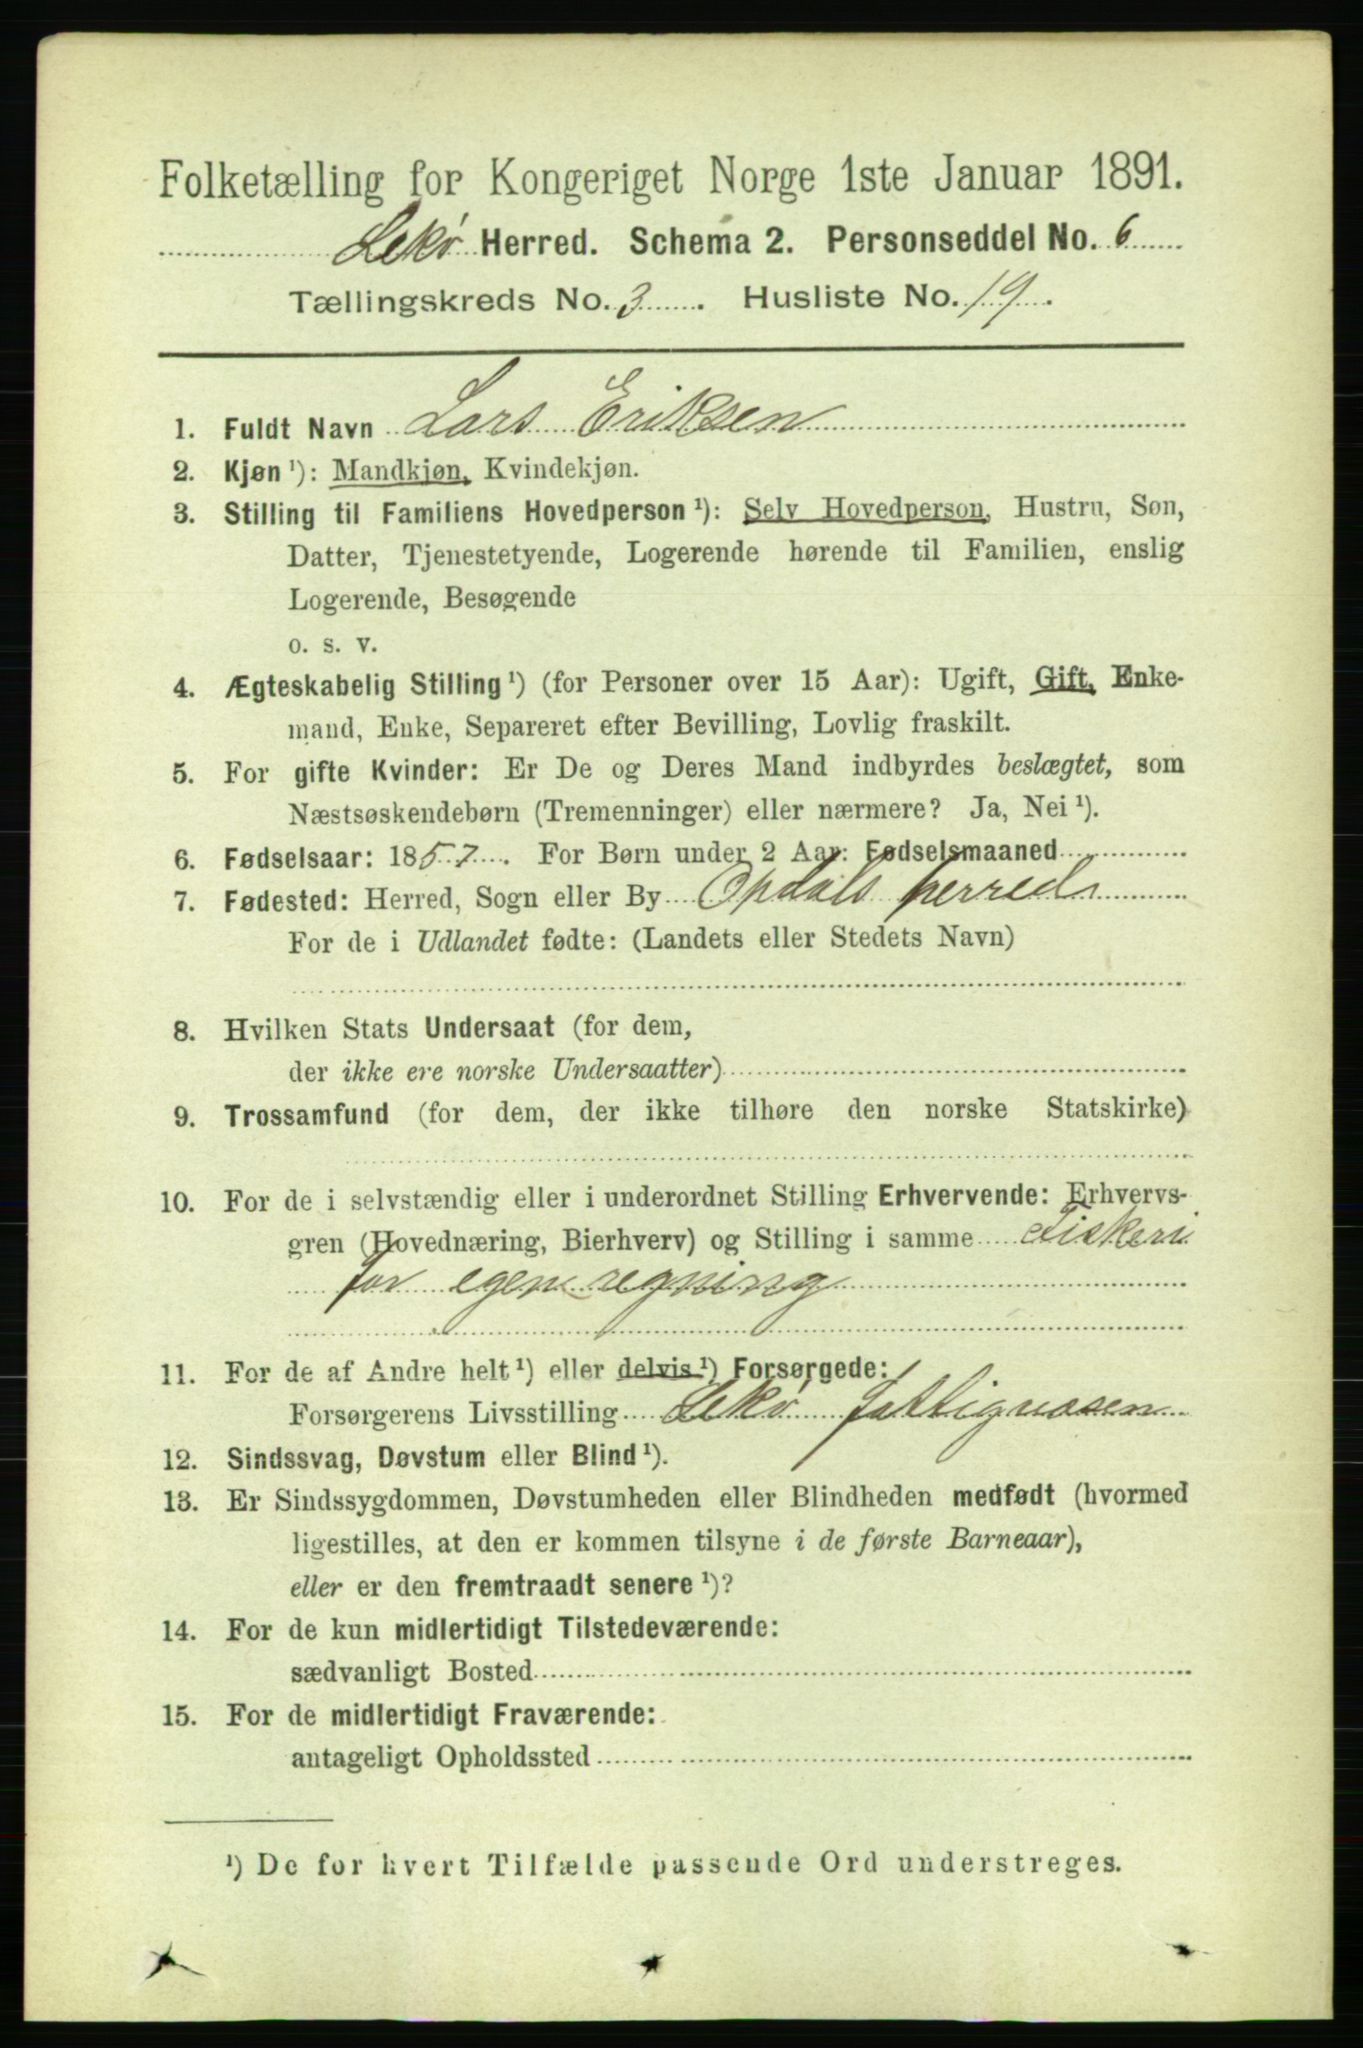 Folketælling for Kongeriget Norge 1ste Januar 1891.
Lekø Herred. Schema 2. Personseddel No. 6
Tællingskreds No. 3. Husliste No. 19.
1. Fuldt Navn Lars Eriksen
2. Kjøn ¹): Mandkjøn, Kvindekjøn.
3. Stilling til Familiens Hovedperson ¹): Selv Hovedperson, Hustru, Søn,
Datter, Tjenestetyende, Logerende hørende til Familien, enslig
Logerende, Besøgende
o. s. v.
4. Ægteskabelig Stilling ¹) (for Personer over 15 Aar): Ugift, Gift, Enke-
mand, Enke, Separeret efter Bevilling, Lovlig fraskilt.
5. For gifte Kvinder: Er De og Deres Mand indbyrdes beslægtet, som
Næstsøskendebørn (Tremenninger) eller nærmere? Ja, Nei ¹).
6. Fødselsaar: 1857. For Børn under 2 Aar: Fødselsmaaned
7. Fødested: Herred, Sogn eller By Opdals herred
For de i Udlandet fødte: (Landets eller Stedets Navn)
8. Hvilken Stats Undersaat (for dem,
der ikke ere norske Undersaatter)
9. Trossamfund (for dem, der ikke tilhøre den norske Statskirke)
10. For de i selvstændig eller i underordnet Stilling Erhvervende: Erhvervs-
gren (Hovednæring, Bierhverv) og Stilling i samme Fiskeri
for egen regning
11. For de af Andre helt ¹) eller delvis ¹) Forsørgede:
Forsørgerens Livsstilling Lekø fattigvæsen
12. Sindssvag, Døvstum eller Blind ¹).
13. Er Sindssygdommen, Døvstumheden eller Blindheden medfødt (hvormed
ligestilles, at den er kommen tilsyne i de første Barneaar),
eller er den fremtraadt senere ¹)?
14. For de kun midlertidigt Tilstedeværende:
sædvanligt Bosted
15. For de midlertidigt Fraværende:
antageligt Opholdssted
¹) De for hvert Tilfælde passende Ord understreges.